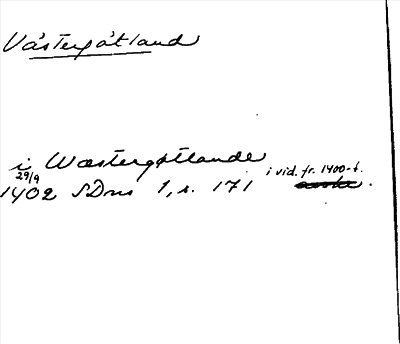 Västergötland
i Wæstergøtlande
29/9 i vid. fr. 1400-t.
1402 SDns 1, s. 171